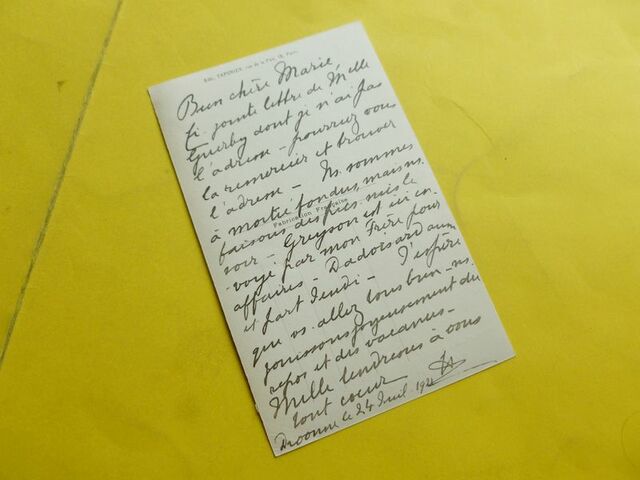 Bien chère Marie
Ci jointe lettre de Mlle
dont je n'ai pas
l'adresse - pourriez vous
la remercier et trouver
l'adresse - Ns. sommes
à moitié fondus, mais ns.
Fabrication Française
faisons des le
soir - Greyson est ici en-
voyé par mon Frère pour
affaires -
et part Jeudi - J'espère
que vs. allez tous bien - ns.
jouissons joyeusement du
repos et des vacances -
Mille tendresses à vous
tout coeur
le 24 Juil. 192